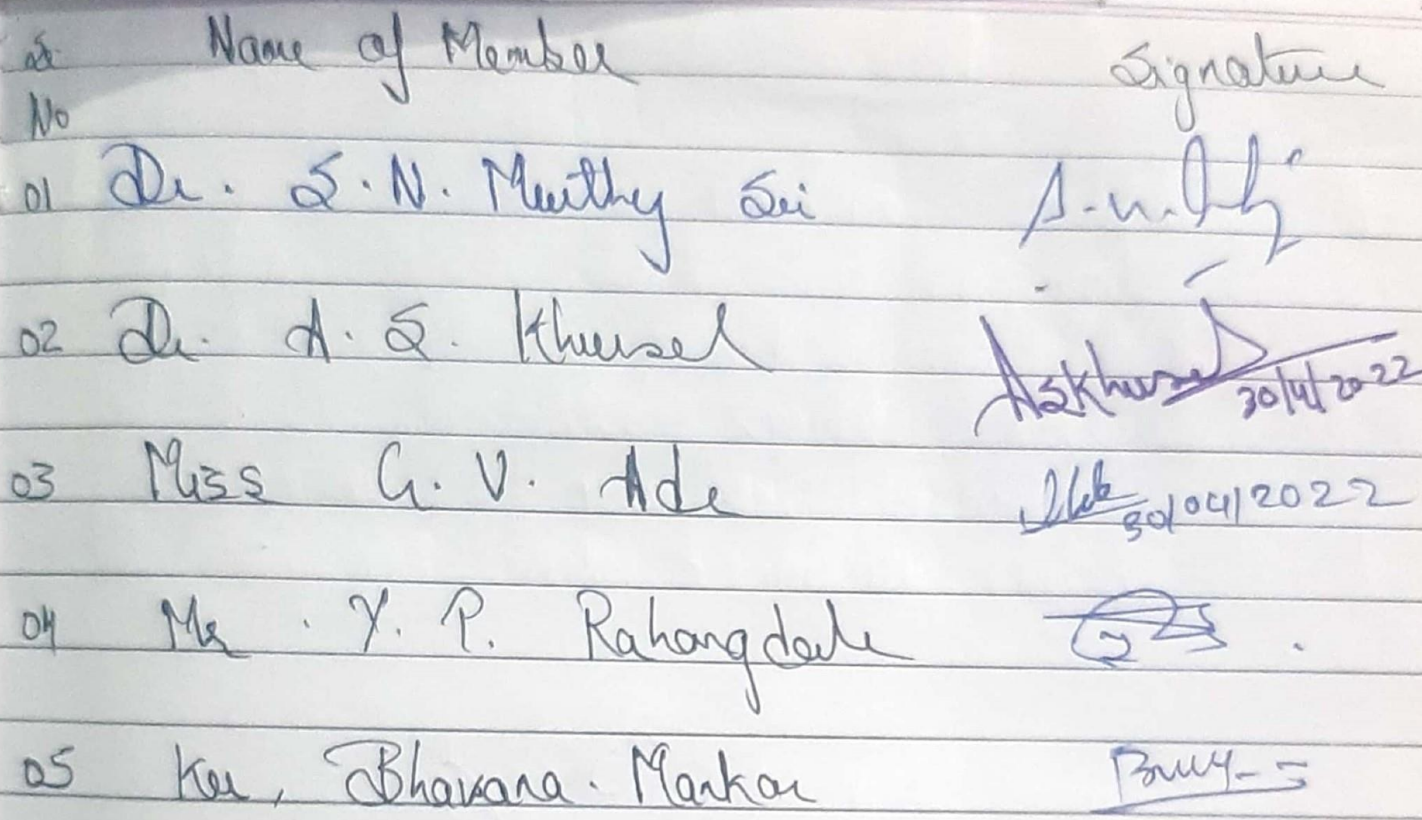 Sr. Name of Member Signature
No
01 Dr. S. N. Murthy Sir S.N.
02 Dr. A. S. Khursel ASKhursel 30/4/2022
03 Miss G. V. Ade 30/04/2022
04 Mr. Y. P. Rahangdale
05 Ku, Bhavana. Mankar